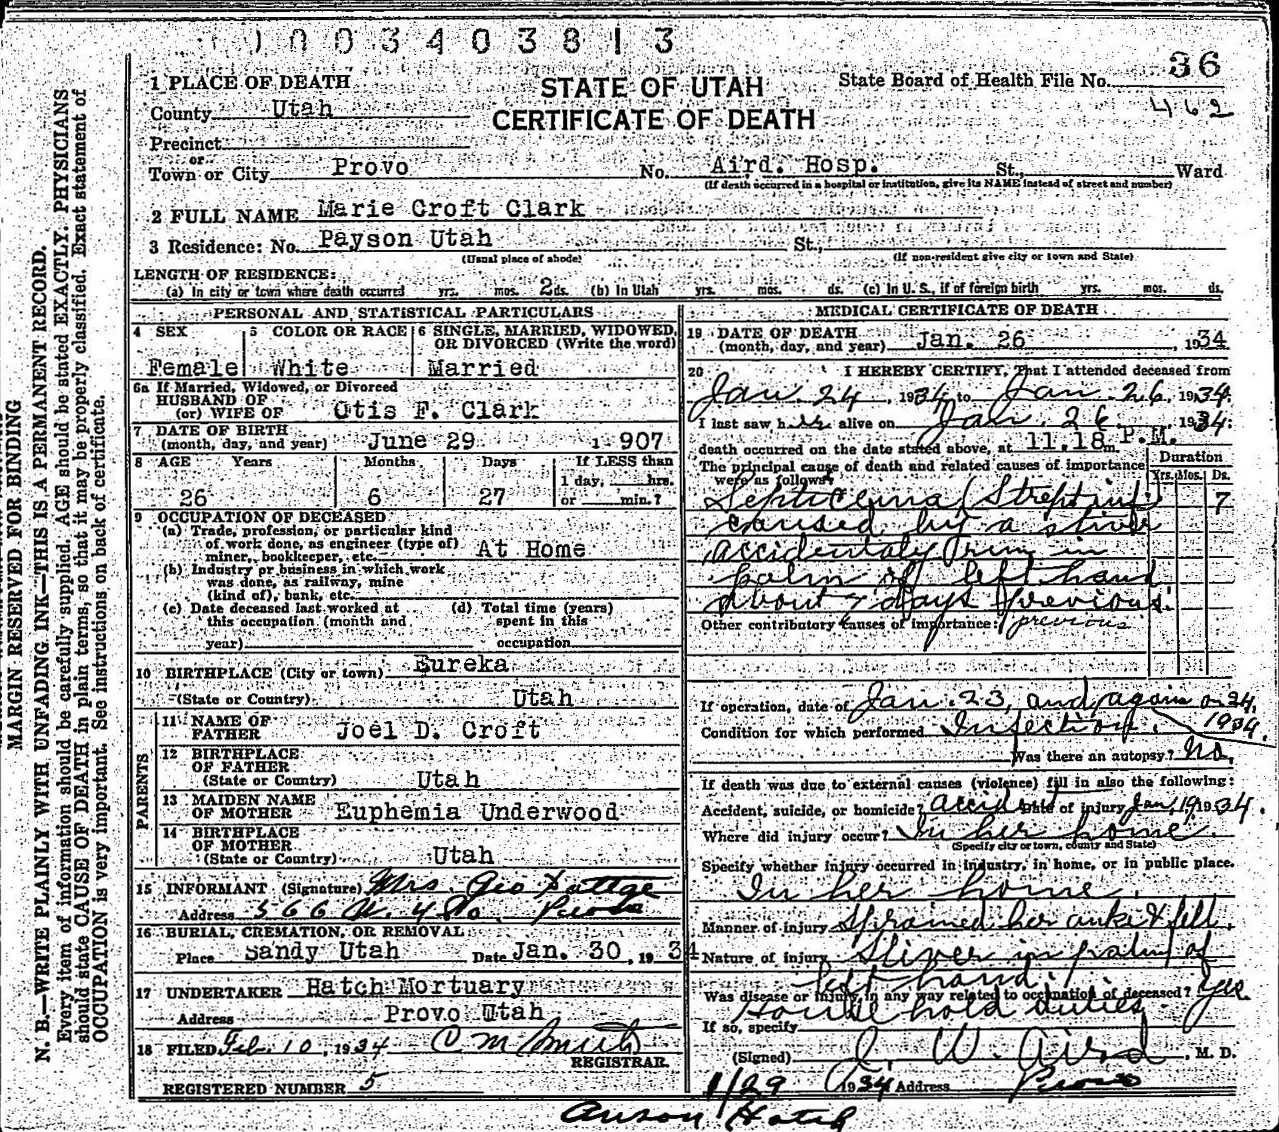 1003403813
36
1 PLACE OF DEATH
STATE OF UTAH
State Board of Health File No.
County Utah
CERTIFICATE OF DEATH
462
Precinct
or
Town or City Provo No. Aird. Hosp. St., Ward
(If death occurred in a hospital or institution, give its NAME instead of street and number)
2 FULL NAME Marie Croft Clark
3 Residence: No. Payson Utah St.,
(Usual place of abode) (If non-resident give city or town and State)
LENGTH OF RESIDENCE:
(a) In city or town where death occurred yrs. mos. 2 ds. (b) In Utah yrs. mos. ds. (c) In U. S., if of foreign birth yrs. mos. ds.
PERSONAL AND STATISTICAL PARTICULARS
4 SEX 5 COLOR OR RACE 6 SINGLE, MARRIED, WIDOWED, OR DIVORCED (Write the word)
Female White Married
6a If Married, Widowed, or Divorced
HUSBAND OF
(or) WIFE OF Otis F. Clark
7 DATE OF BIRTH
(month, day, and year) June 29 1907
8 AGE Years Months Days If LESS than
1 day, hrs.
26 6 27 or min.?
9 OCCUPATION OF DECEASED
(a) Trade, profession, or particular kind
of work done, as engineer (type of)
miner, bookkeeper, etc. At Home
(b) Industry or business in which work
was done, as railway, mine
(kind of), bank, etc.
(c) Date deceased last worked at
this occupation (month and
year)
(d) Total time (years)
spent in this
occupation
10 BIRTHPLACE (City or town) Eureka
(State or Country) Utah
PARENTS
11 NAME OF
FATHER Joel D. Croft
12 BIRTHPLACE
OF FATHER
(State or Country) Utah
13 MAIDEN NAME
OF MOTHER Euphemia Underwood
14 BIRTHPLACE
OF MOTHER
(State or Country) Utah
15 INFORMANT (Signature) Mrs. Geo
Address 566 W. 4 So. Provo
16 BURIAL, CREMATION, OR REMOVAL
Place Sandy Utah Date Jan. 30, 1934
17 UNDERTAKER Hatch Mortuary
Address Provo Utah
18 FILED Feb. 10, 1934 C M Smith
REGISTRAR.
REGISTERED NUMBER 5
MEDICAL CERTIFICATE OF DEATH
19 DATE OF DEATH
(month, day, and year) Jan. 26, 1934
20 I HEREBY CERTIFY, That I attended deceased from
Jan. 24, 1934, to Jan. 26, 1934.
I last saw her alive on Jan. 26, 1934:
death occurred on the date stated above, at 11.18 P.M. m.
The principal cause of death and related causes of importance
were as follows:
Duration
Yrs. Mos. Ds.
Septicemia (Strept inf) 7
caused by a sliver
accidentaly run in
palm of left hand
about 7 days previous.
Other contributory causes of importance: previous
If operation, date of Jan. 23, and again on 24, 1934.
Condition for which performed Infection.
Was there an autopsy? No.
If death was due to external causes (violence) fill in also the following:
Accident, suicide, or homicide? accident Date of injury Jan. 19 1934.
Where did injury occur? In her home.
(Specify city or town, county and State)
Specify whether injury occurred in industry, in home, or in public place.
In her home.
Manner of injury Sprained her ankle & fell.
Nature of injury Sliver in palm of
left hand.
Was disease or injury in any way related to occupation of deceased? Yes
If so, specify Household duties
(Signed) J. W. Aird, M. D.
1/29 1934 Address Provo
Anson Hatch
MARGIN RESERVED FOR BINDING
N. B.—WRITE PLAINLY WITH UNFADING INK—THIS IS A PERMANENT RECORD.
Every item of information should be carefully supplied. AGE should be stated EXACTLY. PHYSICIANS
should state CAUSE OF DEATH in plain terms, so that it may be properly classified. Exact statement of
OCCUPATION is very important. See instructions on back of certificate.